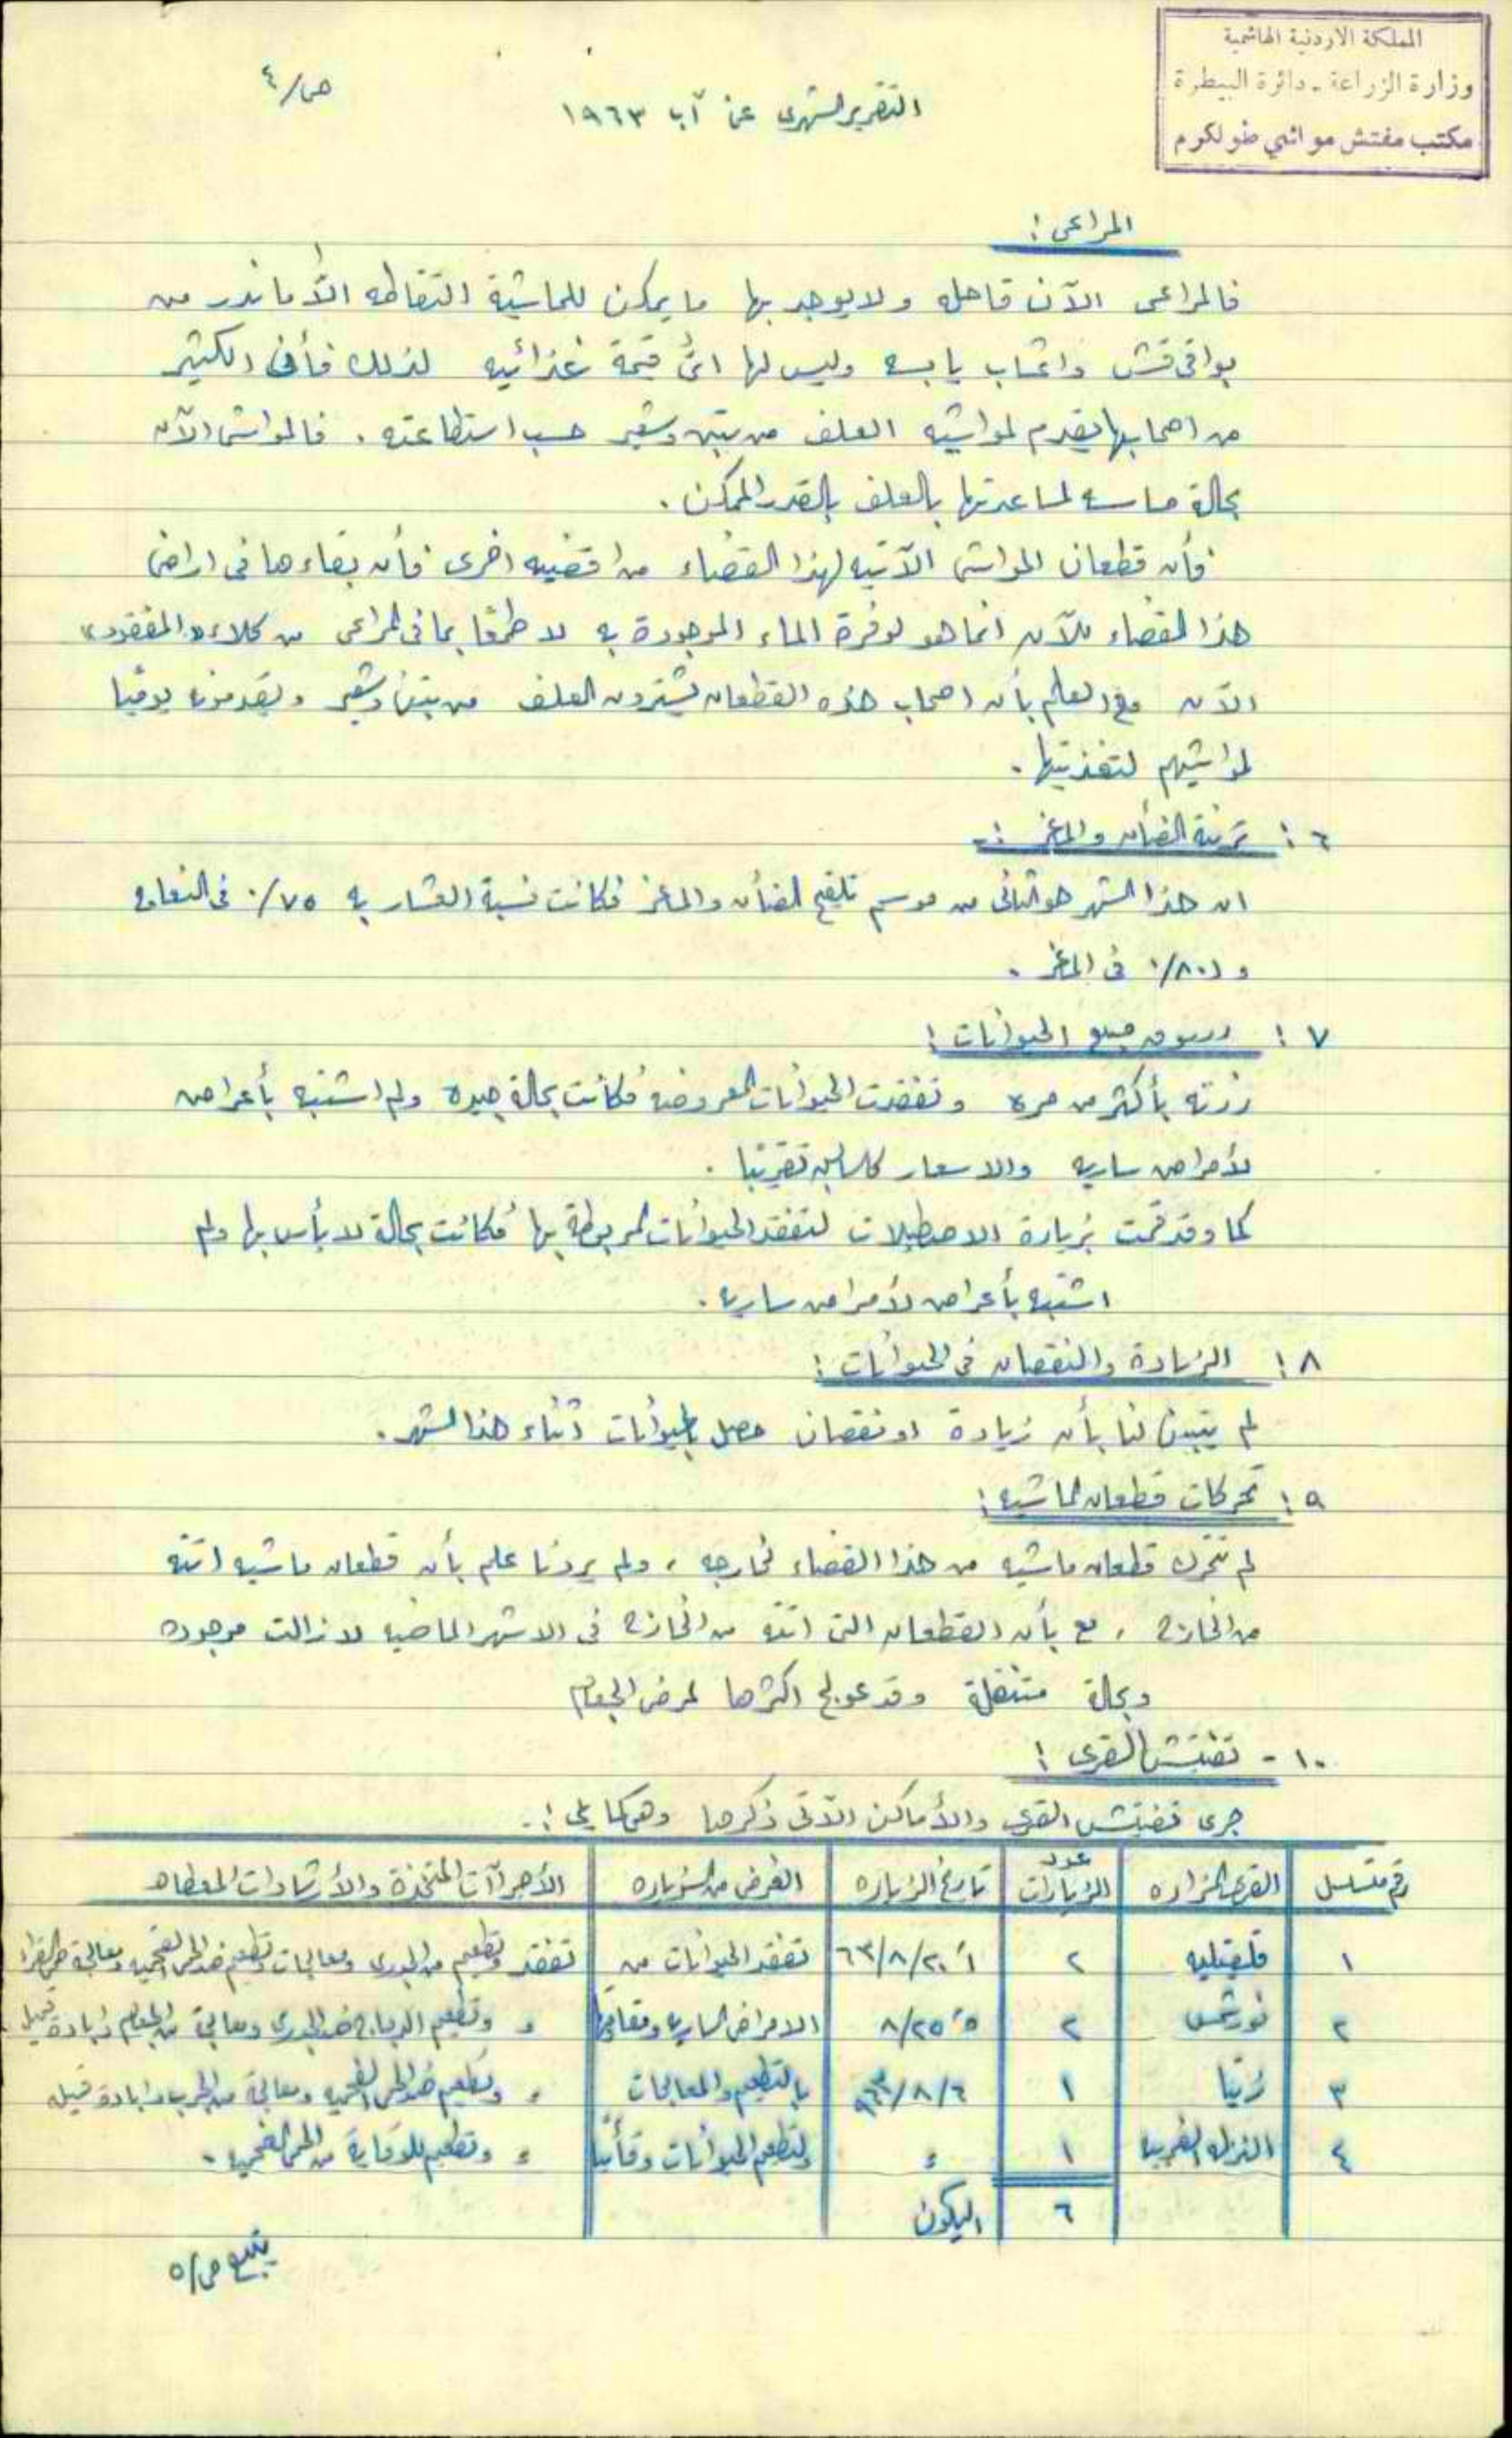 المملكة الاردنية الهاشمية
وزارة الزراعة - دائرة البيطرة
مكتب مفتش مواشي طولكرم
ص/٤
التقرير الشهري عن آب ١٩٦٣
المراعي :
فالمراعى الآن قاحله ولا يوجد بها ما يمكن للماشية التقاطه الّا ما ندر من
بواقي قش واعشاب يابسه وليس لها اي قيمة غذائيه لذلك فأن الكثير
من اصحابها يقدم لمواشيه العلف من تبن وشعير حسب استطاعته . فالمواشي الآن
بحالة ماسه لمساعدتها بالعلف بالقدر الممكن .
فأن قطعان المواشي الآتيه لهذا القضاء من اقضيه اخرى فأن بقاءها في اراضي
هذا القضاء للآن انما هو لوفرة الماء الموجودة به لا طمعًا بما في المراعي من كلاء «المفقود»
الآن مع العلم بأن اصحاب هذه القطعان يشترون العلف من تبن وشعير ويقدمونه يوميًا
لمواشيهم لتغذيتها .
٦ : تربية الضأن والماعز :-
ان هذا الشهر هو الثاني من موسم تلقيح الضأن والماعز فكانت نسبة العشار به ٧٥ ٪ في النعاج
و (٨٠ ٪ في الماعز .
٧ : سوق بيع الحيوانات :
زرته بأكثر من مره وتفقدت الحيوانات المعروضه فكانت بحالة جيده ولم اشتبه بأعراض
لأمراض ساريه والاسعار كالسابق تقريبًا .
كما وقد قمت بزيارة الاصطبلات لتفقد الحيوانات المربوطة بها فكانت بحالة لا بأس بها ولم
اشتبه بأعراض لأمراض ساريه .
٨ : الزيادة والنقصان في الحيوانات :
لم يتبين لنا بأن زيادة او نقصان حصل بالحيوانات اثناء هذا الشهر .
٩ : تحركات قطعان الماشيه :
لم تتحرك قطعان ماشيه من هذا القضاء لخارجه ، ولم يردنا علم بأن قطعان ماشيه اتته
من الخارج ، مع بأن القطعان التي اتته من الخارج في الاشهر الماضيه لا زالت موجوده
وبحالة متنقلة وقد عولج اكثرها لمرض الجعام
١٠ - تفتيش القرى :
جرى تفتيش القرى والأماكن الآتي ذكرها وهي كما يلي :-
رقم متسلسل | القرى المزاره | عدد الزيارات | تاريخ الزياره | الغرض من الزياره | الأجراآت المتخذة والأرشادات المعطاه
١ | قلقيليه | ٢ | ١ ، ٢٠/٨/٦٣ | تفقد الحيوانات من | تفقد وتطعيم من الجدري ومعالجات وتطعيم ضد الحمى الفحميه ومعالجة
٢ | نورشمس | ٢ | ٥ ، ٢٥/٨ | الامراض الساريه | " وتطعيم الدجاج ضد الجدري ومعالجة من الجعام
٣ | زيتا | ١ | ٦/٨/٩٦٣ | بالتطعيم والمعالجات | " وتطعيم ضد الحمى الفحميه ومعالجة من الجرب
٤ | النزله الغربيه | ١ | " | وتطعيم الحيوانات وقائيًا | " وتطعيم للوقاية من الحمى الفحميه .
٦ اليكون
يتبع ص/٥